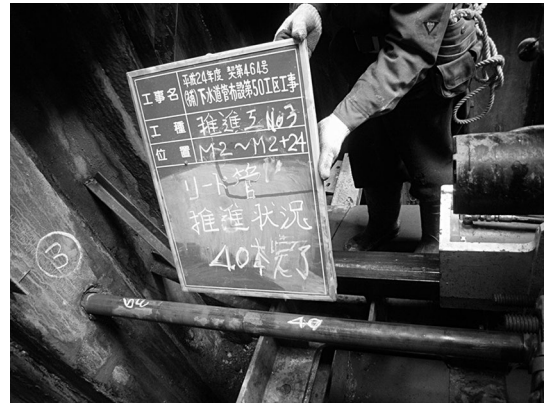 工事名
平成24年度 契第464号
(補)下水道管布設第50工区工事
工種
推進工 No3
位置
M-2～M2+24
リード管
推進状況
40本完了
B
40